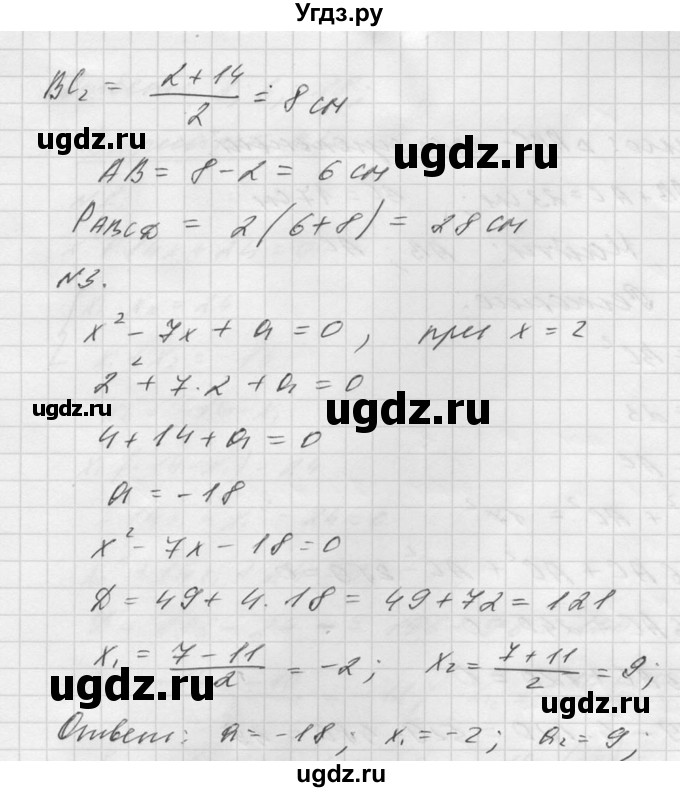 Угдз.ру
BC₂ = (2+14)/2 = 8 см
ugdz.ru ugdz.ru
AB = 8 - 2 = 6 см
P ABCD = 2(6+8) = 28 см
N3.
x² - 7x + a = 0, при x = 2
2² + 7·2 + a = 0
ugdz.ru ugdz.ru
4 + 14 + a = 0
a = -18
x² - 7x - 18 = 0
ugdz.ru
D = 49 + 4·18 = 49 + 72 = 121
x₁ = (7-11)/2 = -2; x₂ = (7+11)/2 = 9;
ugdz.ru ugdz.ru
Ответ: a = -18; x₁ = -2; a₂ = 9;
ugdz.ru